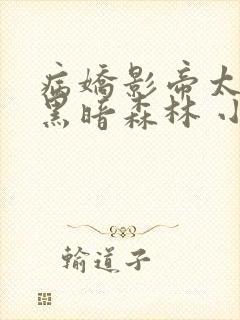 病嬌影帝太
黑暗森林 小
輸道子